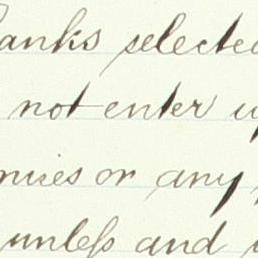 anks selected
not enter
or any
unless and